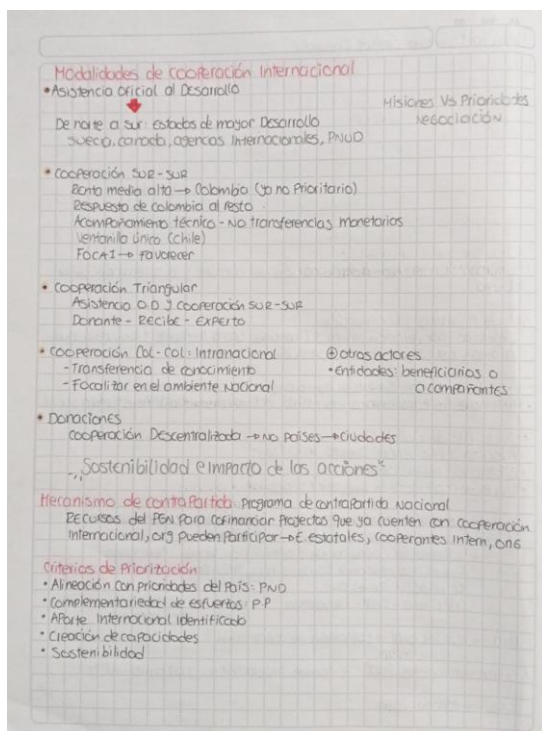 Modalidades de cooperación Internacional
• Asistencia oficial al Desarrollo
Misiones Vs Prioridades
Negociación
De norte a sur: estados de mayor Desarrollo
sueco, canada, agencias Internacionales, PNUD
• Cooperación SUR-SUR
Renta media alta → Colombia (ya no Prioritario)
Respuesta de colombia al resto
Acompañamiento técnico - No transferencias monetarias
Ventanilla única (chile)
FOCAI → Favorecer
• Cooperación Triangular
Asistencia O.D y Cooperación SUR-SUR
Donante - Recibe - Experto
• Cooperación Col-Col: Intranacional
- Transferencia de conocimiento
- Focalizar en el ambiente Nacional
⊕ otros actores
• Entidades: beneficiarios o
acompañantes
• Donaciones
Cooperación Descentralizada → No países → ciudades
"Sostenibilidad e impacto de las acciones"
Mecanismo de contraPartida: Programa de contrapartida Nacional
Recursos del PGN para cofinanciar Proyectos que ya cuenten con cooperación
Internacional, org pueden participar → E. estatales, cooperantes Intern, ONG
Criterios de Priorización
• Alineación con prioridades del País: PND
• Complementariedad de esfuerzos: P.P
• Aporte Internacional identificado
• Creación de capacidades
• Sostenibilidad